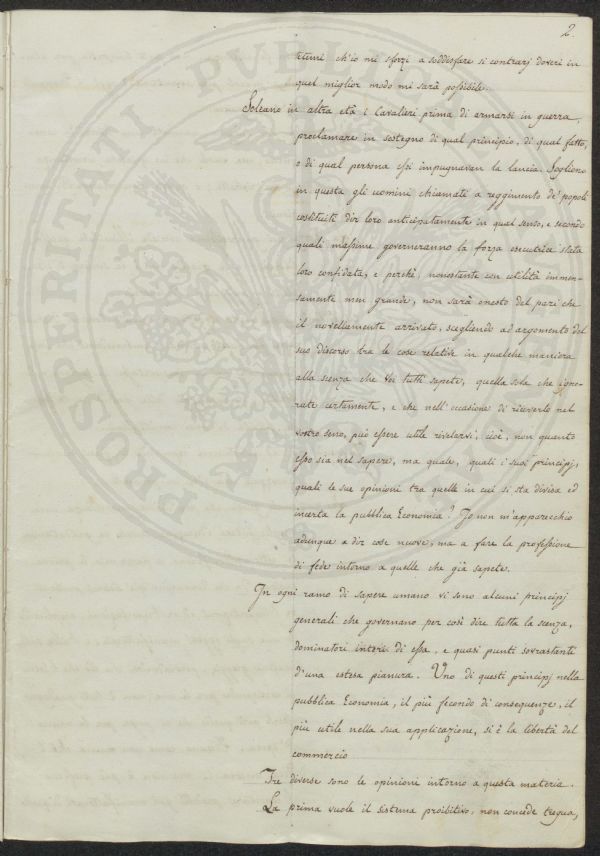 2
ch'io mi sforzi a soddisfare si contrarj doveri in
quel miglior modo mi sarà possibile.
Soleano in altra età i Cavalieri prima di armarsi in guerra,
proclamare in sostegno di qual principio, di qual fatto,
o di qual persona essi impugnavan la lancia. Sogliono
in questa gli uomini chiamati a reggimento de' popoli
costituiti dir loro anticipatamente in qual senso, e secondo
quali massime governeranno la forza esecutrice stata
loro confidata, e perchè, nonostante con utilità immen-
samente men grande, non sarà onesto del pari che
il novellamente arrivato, scegliendo ad argomento del
suo discorso tra le cose relative in qualche maniera
alla scenza che Voi tutti sapete, quella sola che igno-
rate certamente, e che nell'occasione di riceverlo nel
vostro seno, può essere utile rivelarvi, cioè, non quanto
esso sia nel sapere, ma quale, quali i suoi principj,
quali le sue opinioni tra quelle in cui si sta divisa ed
incerta la pubblica Economia? Io non m'apparecchio
adunque a dir cose nuove, ma a fare la professione
di fede intorno a quelle che già sapete.
In ogni ramo di sapere umano vi sono alcuni principj
generali che governano per così dire tutta la scenza,
dominatori interi di essa, e quasi punti sovrastanti
d'una estesa pianura. Uno di questi principj nella
pubblica Economia, il più fecondo di conseguenze, il
più utile nella sua applicazione, si è la libertà del
commercio
Tre diverse sono le opinioni intorno a questa materia.
La prima vuole il sistema proibitivo, non concede tregua,
PROSPERITATI PUBLICAE